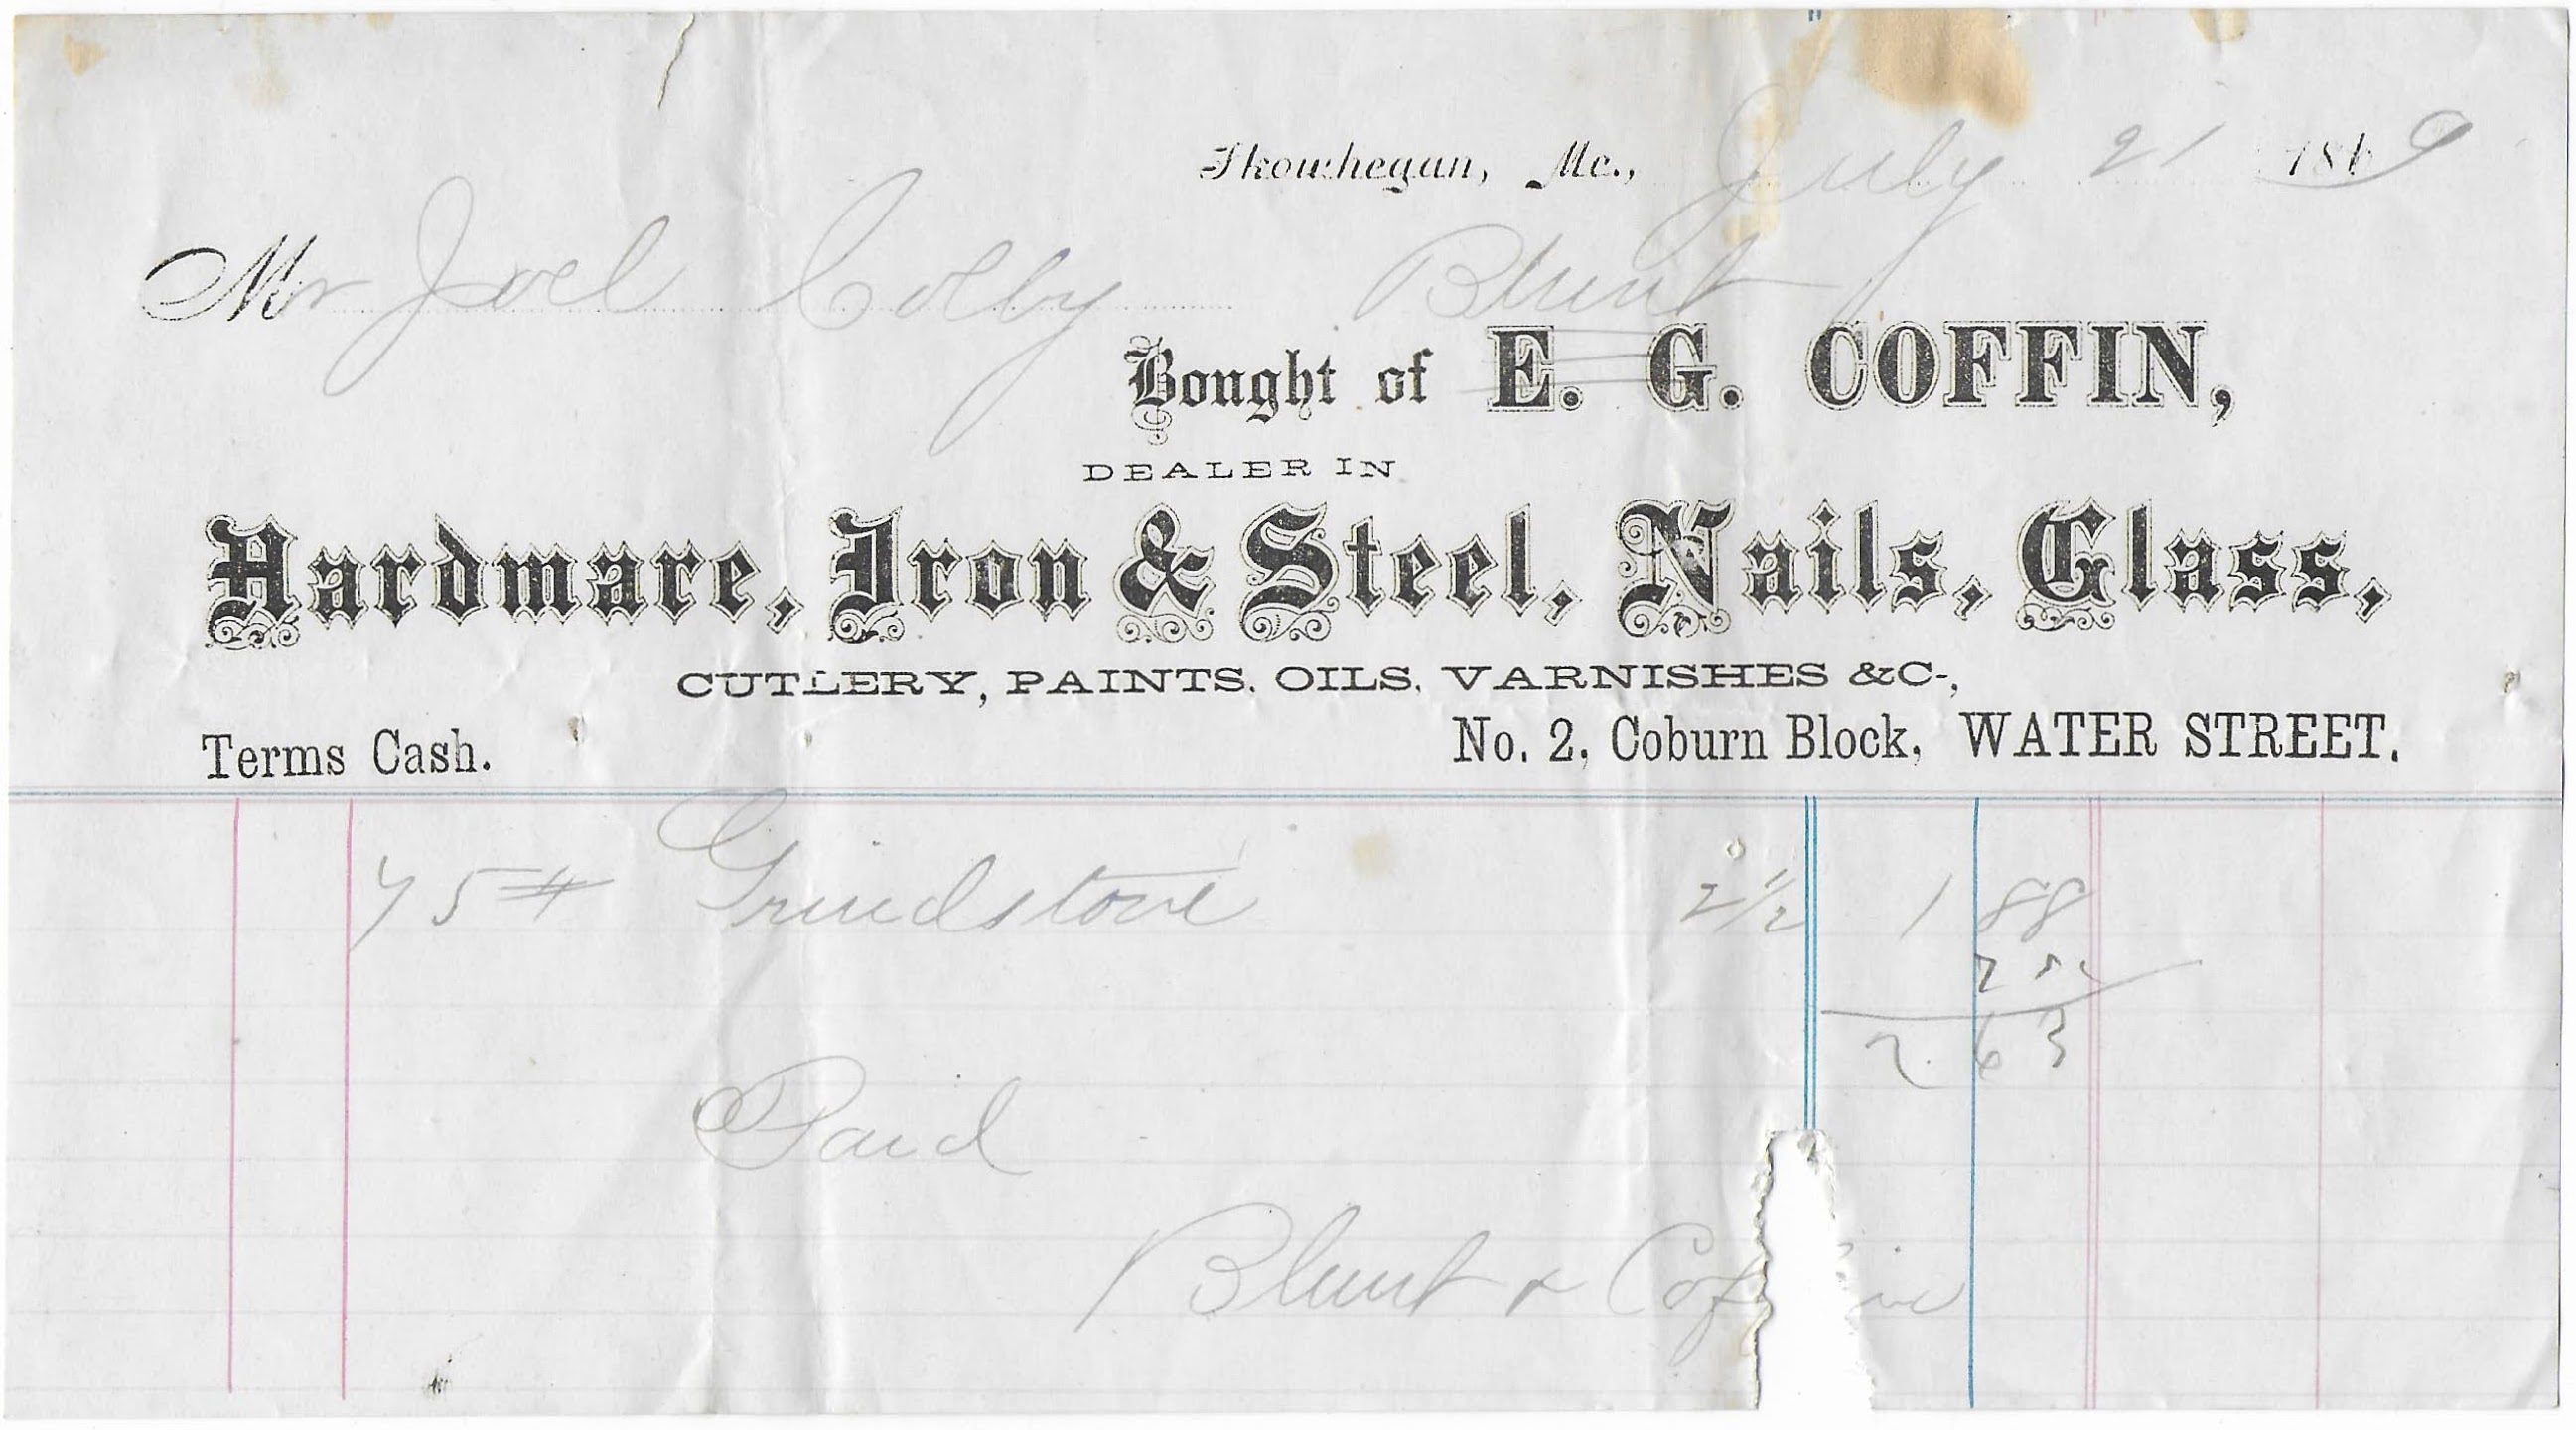 Skowhegan, Me., July 21 1869
Mr Joel Colby Blunt
Bought of E. G. COFFIN,
DEALER IN
Hardware, Iron & Steel, Nails, Glass,
CUTLERY, PAINTS, OILS, VARNISHES &C.,
Terms Cash. No. 2, Coburn Block, WATER STREET.
75# Grindstone 2 1/2 1 88
75
2.63
Paid
Blunt & Coffin